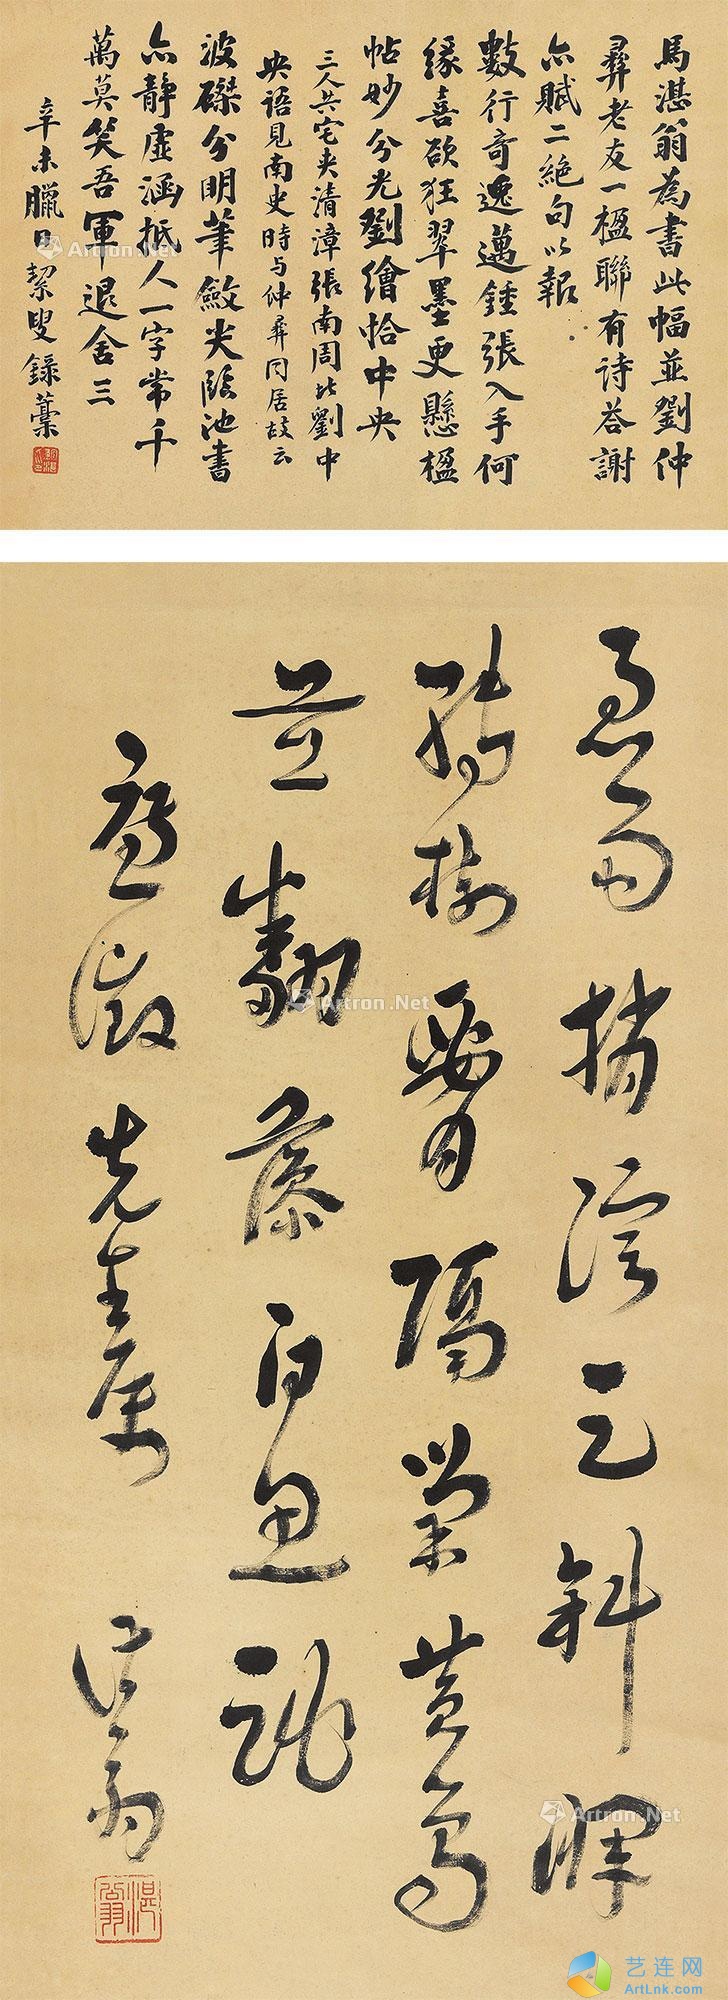 馬湛翁為書此幅並劉仲
彞老友一楹聯有诗荅謝
亦賦二絶句以報
數行奇逸邁鍾張入手何
緣喜欲狂翠墨更懸楹
帖妙分光劉繪恰中央
三人共宅夾清漳張南周北劉中
央語見南史時与仲彞同居故云
波磔分明筆斂尖臨池書
亦静虛涵抵人一字常千
萬莫笑吾軍退舍三
辛未臘日絜叟録藁
急雨捎溪足斜暉
轉樹腰隔巢黃鳥
並翻藻白魚跳
澂先生属 湛翁
湛翁
Artron.Net
Artron.Net
Artron.Net
艺连网
ArtLnk.com